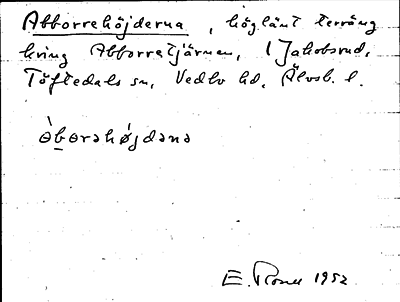 Abborrehöjderna, höglänt terräng
kring Abborretjärnen, 1 Jakobsrud,
Töftedals sn, Vedbo hd, Älvsb. l.
òbərəhǿjdənə
E. 1952